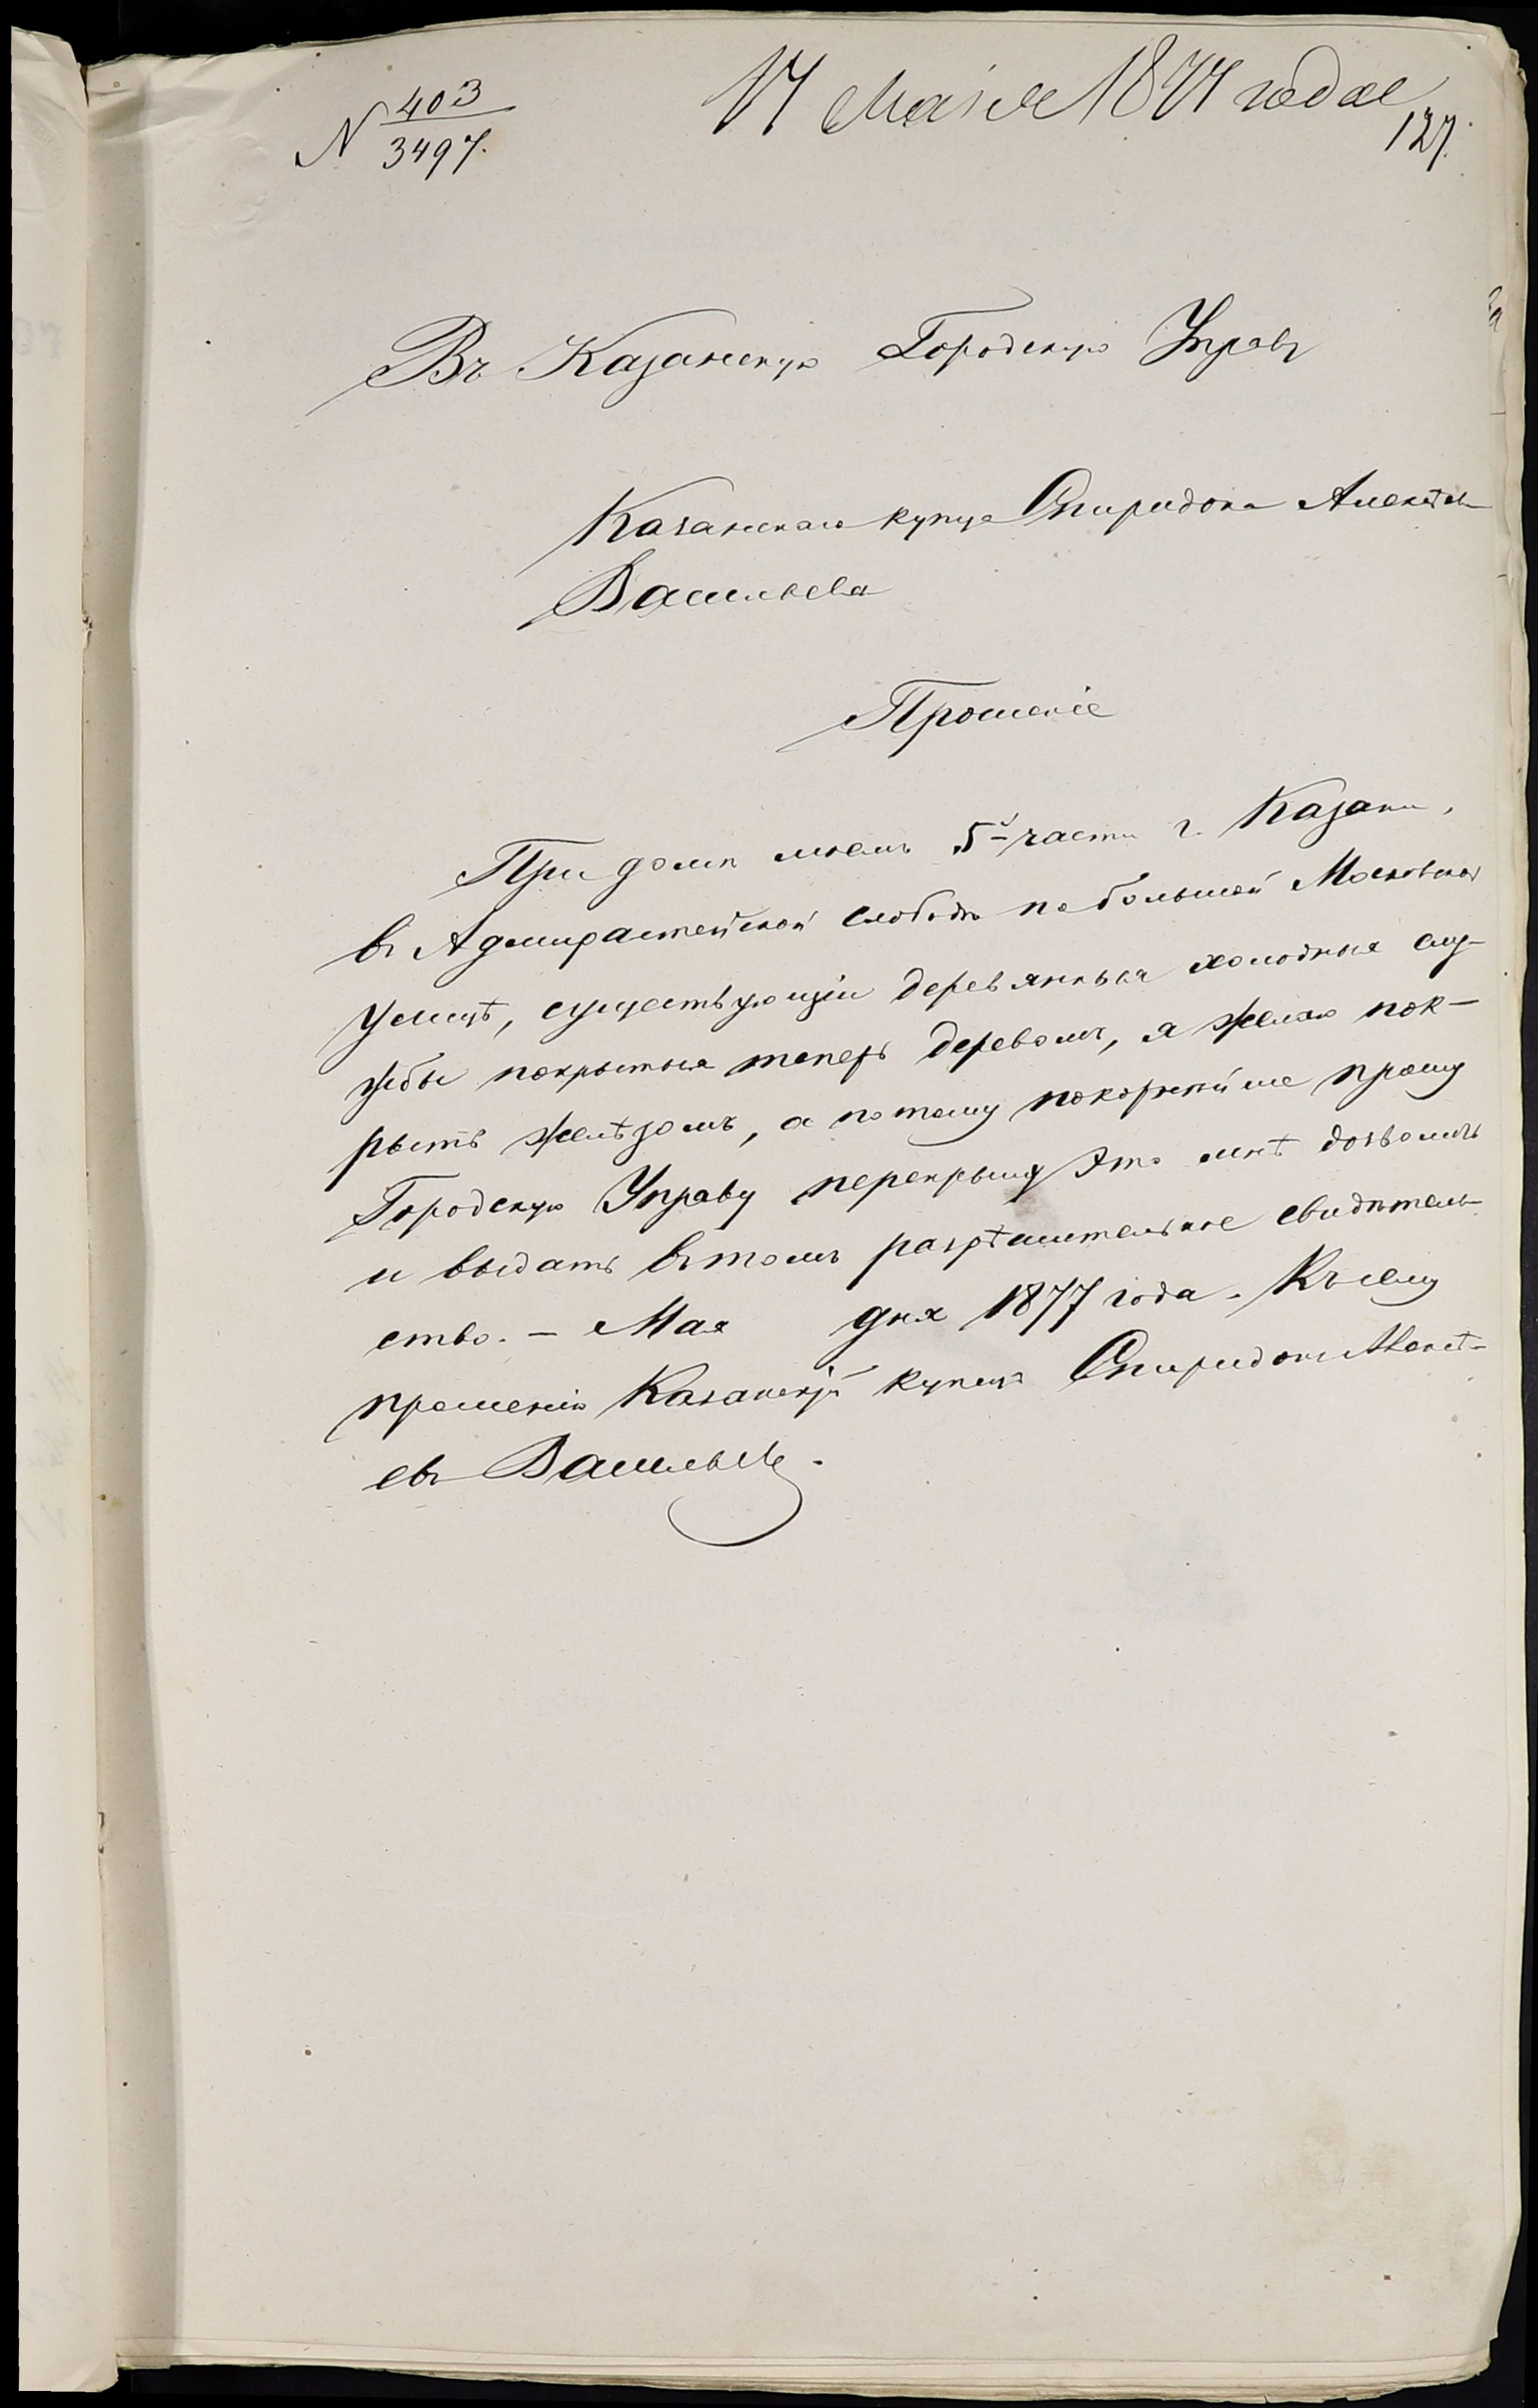 N 403/3497.
17 Мая 1877 года
127.
Въ Казанскую Городскую Управу
Казанскаго купца Спиридона Алексѣева
Васильева
Прошеніе
При домѣ моемъ 5й части г. Казани,
въ Адмиралтейской слободѣ по большой Московской
улицѣ, существующіи деревянныя холодныя слу-
жбы покрытыя теперь деревомъ, я желаю пок-
рыть желѣзомъ, а потому покорнѣйше прошу
Городскую Управу перекрышу это мнѣ дозволить
и выдать въ томъ разрѣшительное свидѣтель-
ство. – Мая дня 1877 года. Къ сему
прошенію Казанскій купецъ Спиридонъ Алексѣ-
евъ Васильевъ.